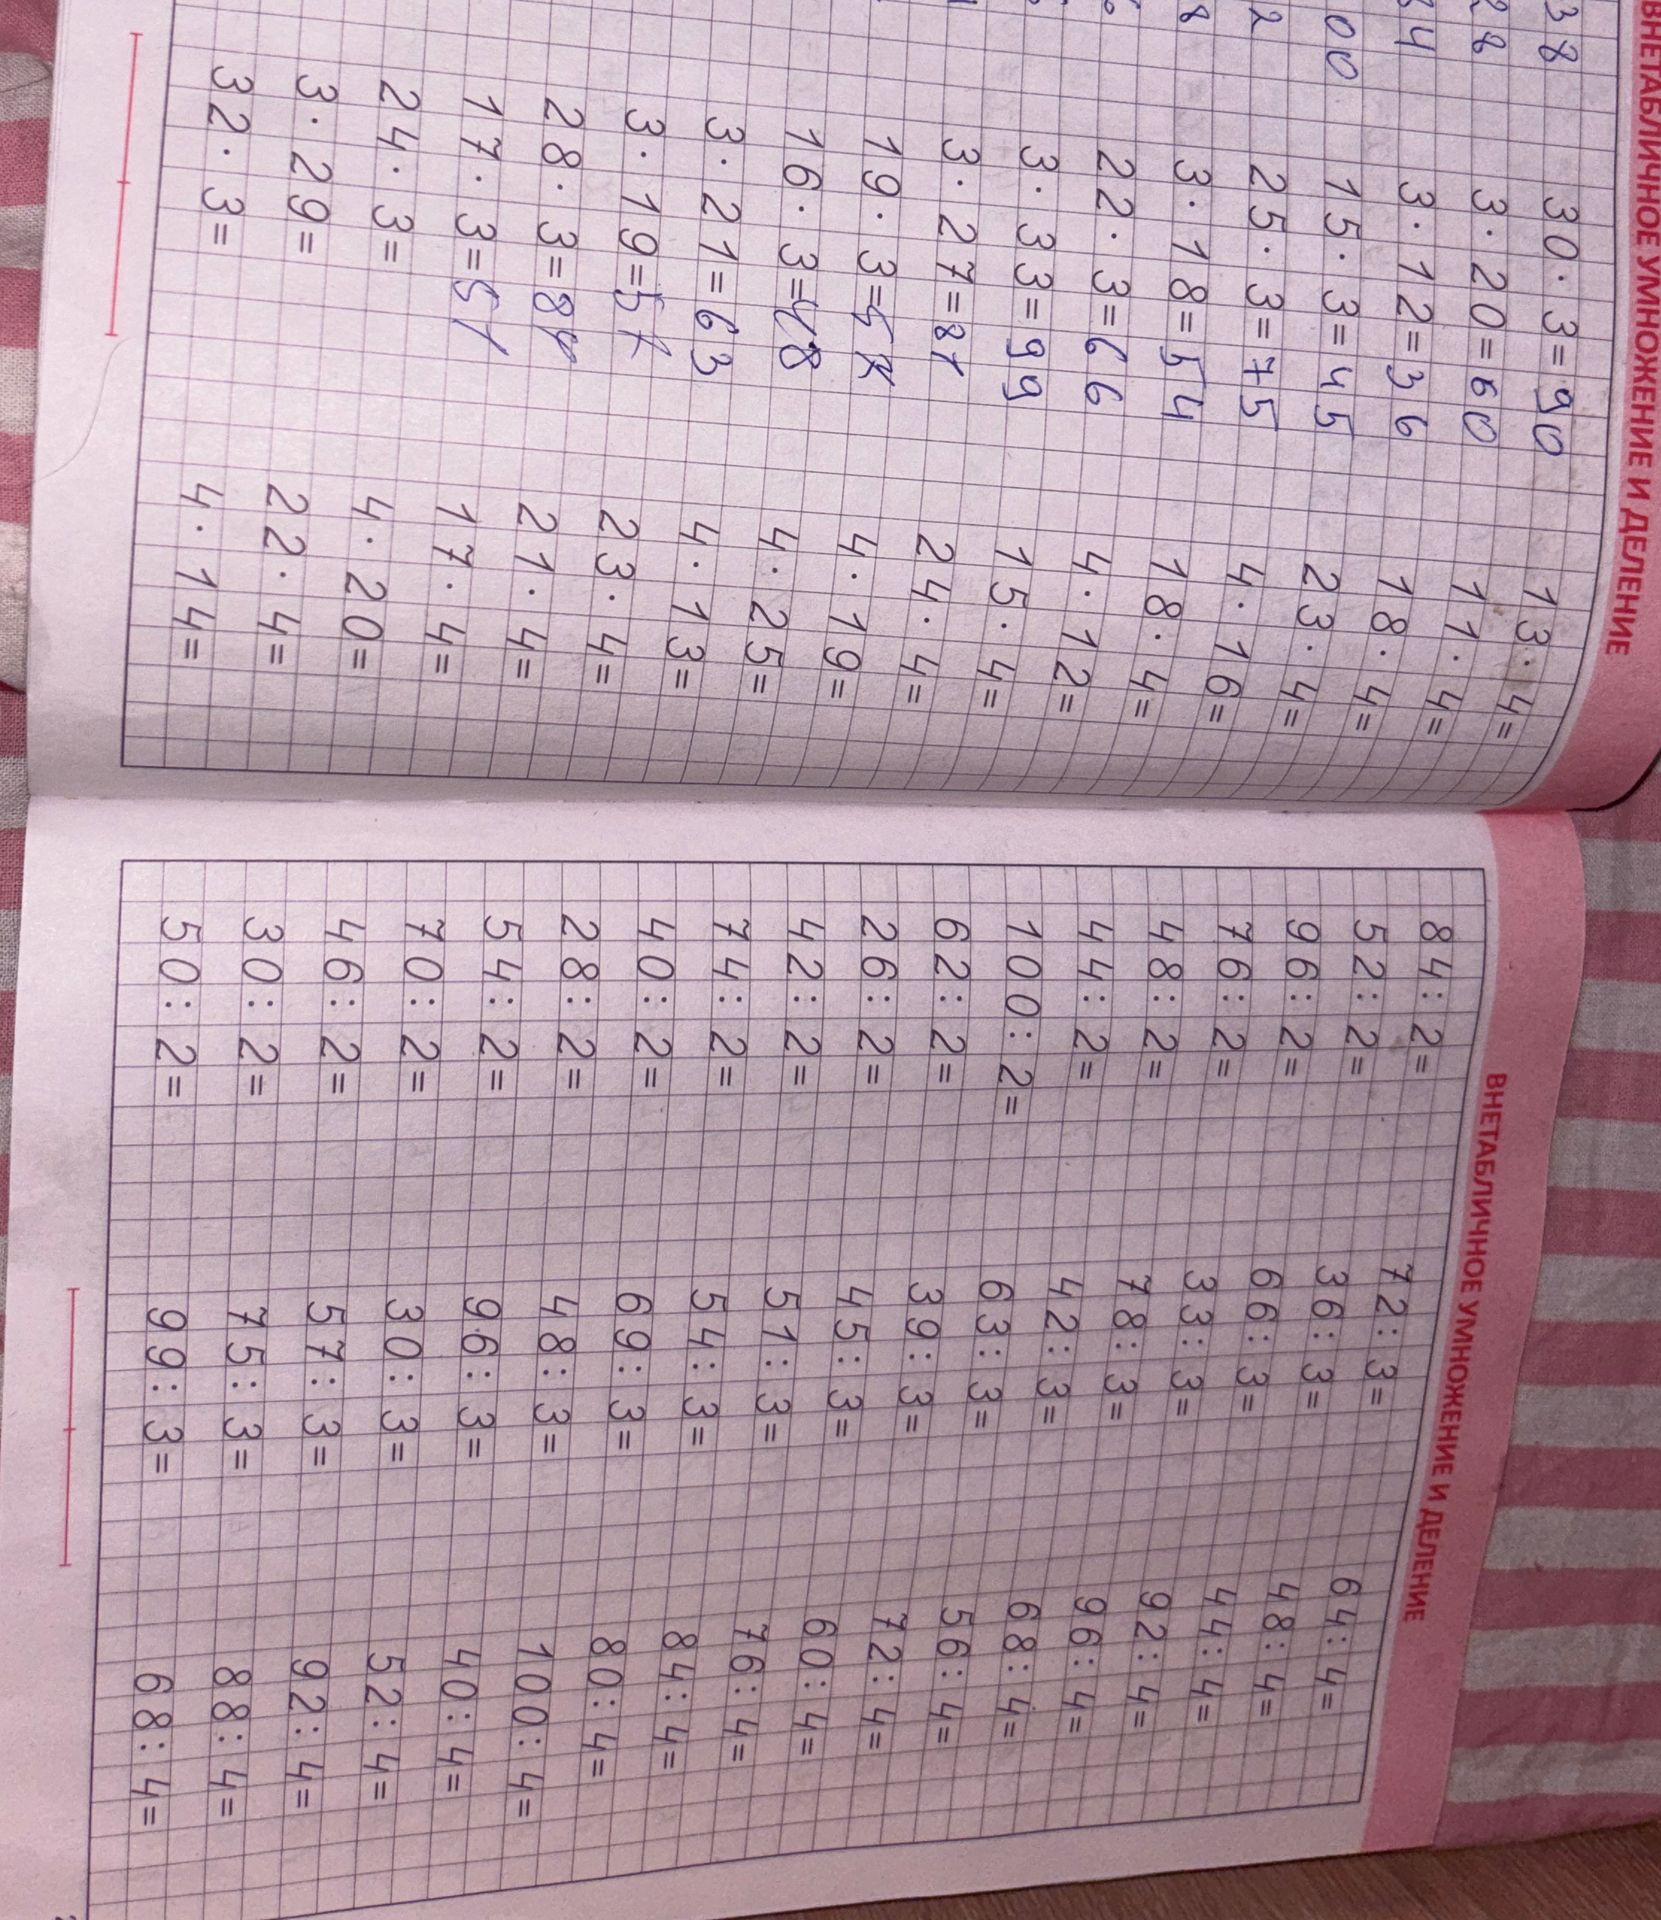 ВНЕТАБЛИЧНОЕ УМНОЖЕНИЕ И ДЕЛЕНИЕ
38 30·3=90 13·4=
28 3·20=60 11·4=
4 3·12=36 18·4=
00 15·3=45 23·4=
2 25·3=75 4·16=
8 3·18=54 18·4=
22·3=66 4·12=
3·33=99 15·4=
3·27=81 24·4=
19·3=57 4·19=
16·3=48 4·25=
3·21=63 4·13=
3·19=57 23·4=
28·3=84 21·4=
17·3=51 17·4=
24·3= 4·20=
3·29= 22·4=
32·3= 4·14=
ВНЕТАБЛИЧНОЕ УМНОЖЕНИЕ И ДЕЛЕНИЕ
84:2= 72:3= 64:4=
52:2= 36:3= 48:4=
96:2= 66:3= 44:4=
76:2= 33:3= 92:4=
48:2= 78:3= 96:4=
44:2= 42:3= 68:4=
100:2= 63:3= 56:4=
62:2= 39:3= 72:4=
26:2= 45:3= 60:4=
42:2= 51:3= 76:4=
74:2= 54:3= 84:4=
40:2= 69:3= 80:4=
28:2= 48:3= 100:4=
54:2= 96:3= 40:4=
70:2= 30:3= 52:4=
46:2= 57:3= 92:4=
30:2= 75:3= 88:4=
50:2= 99:3= 68:4=